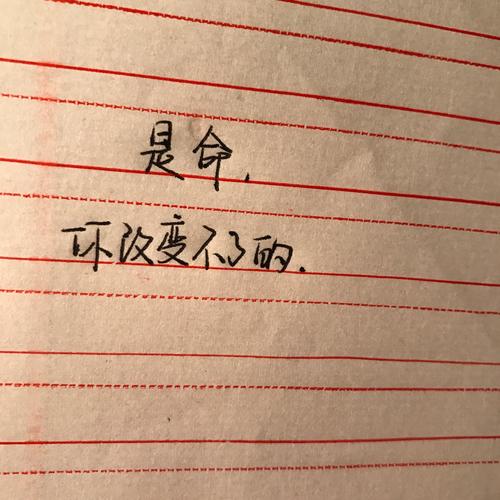 是命,
改变不了的.